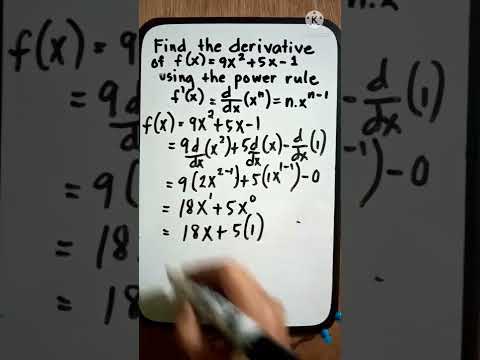 Find the derivative
of f(x) = 9x² + 5x - 1
using the power rule
f'(x) = d/dx (xⁿ) = n.xⁿ⁻¹
f(x) = 9x² + 5x - 1
= 9 d/dx (x²) + 5 d/dx (x) - d/dx (1)
= 9(2x²⁻¹) + 5(1x¹⁻¹) - 0
= 18x¹ + 5x⁰
= 18x + 5(1)